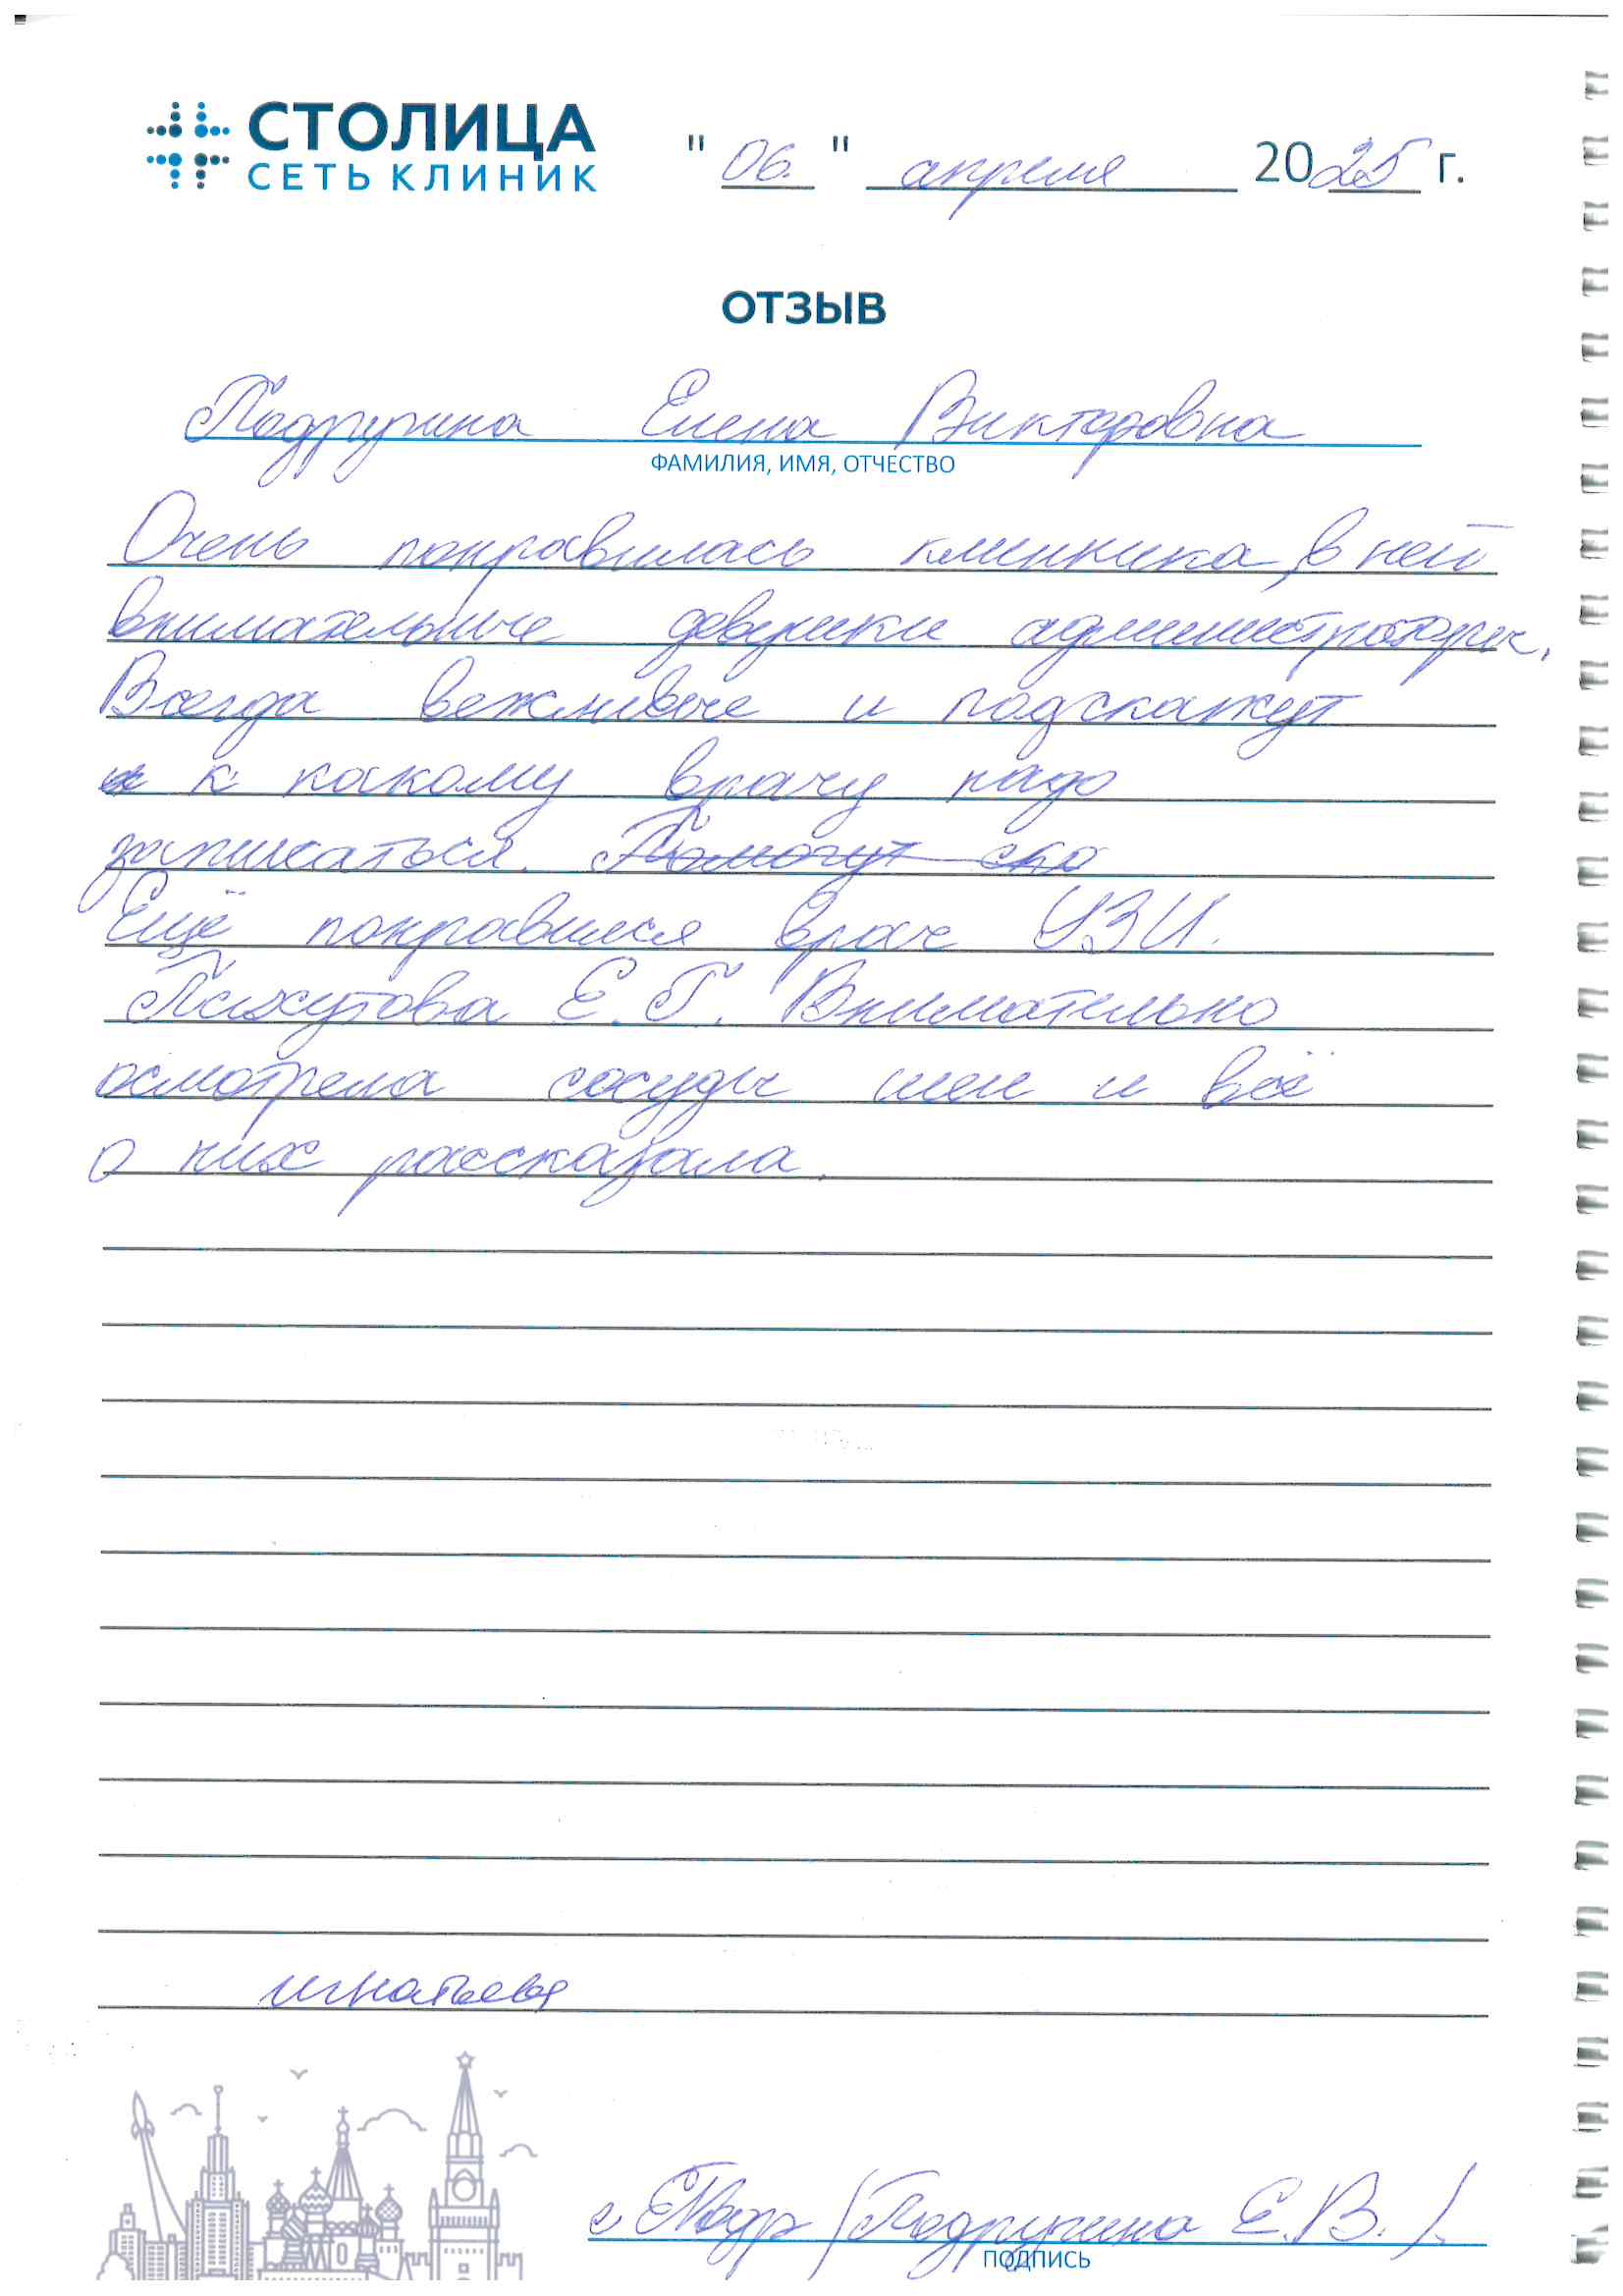 СТОЛИЦА
СЕТЬ КЛИНИК
"06." апреля 2025 г.
ОТЗЫВ
Елена Викторовна
ФАМИЛИЯ, ИМЯ, ОТЧЕСТВО
Очень понравилась клиника, в ней
внимательные девушки администраторы.
Всегда вежливые и подскажут
к какому врачу надо
записаться. Помогут ско
Ещё понравился врач УЗИ.
Е.Г. Внимательно
осмотрела сосуды шеи и всё
о них рассказала.
Игнатьева
Е.В.
ПОДПИСЬ